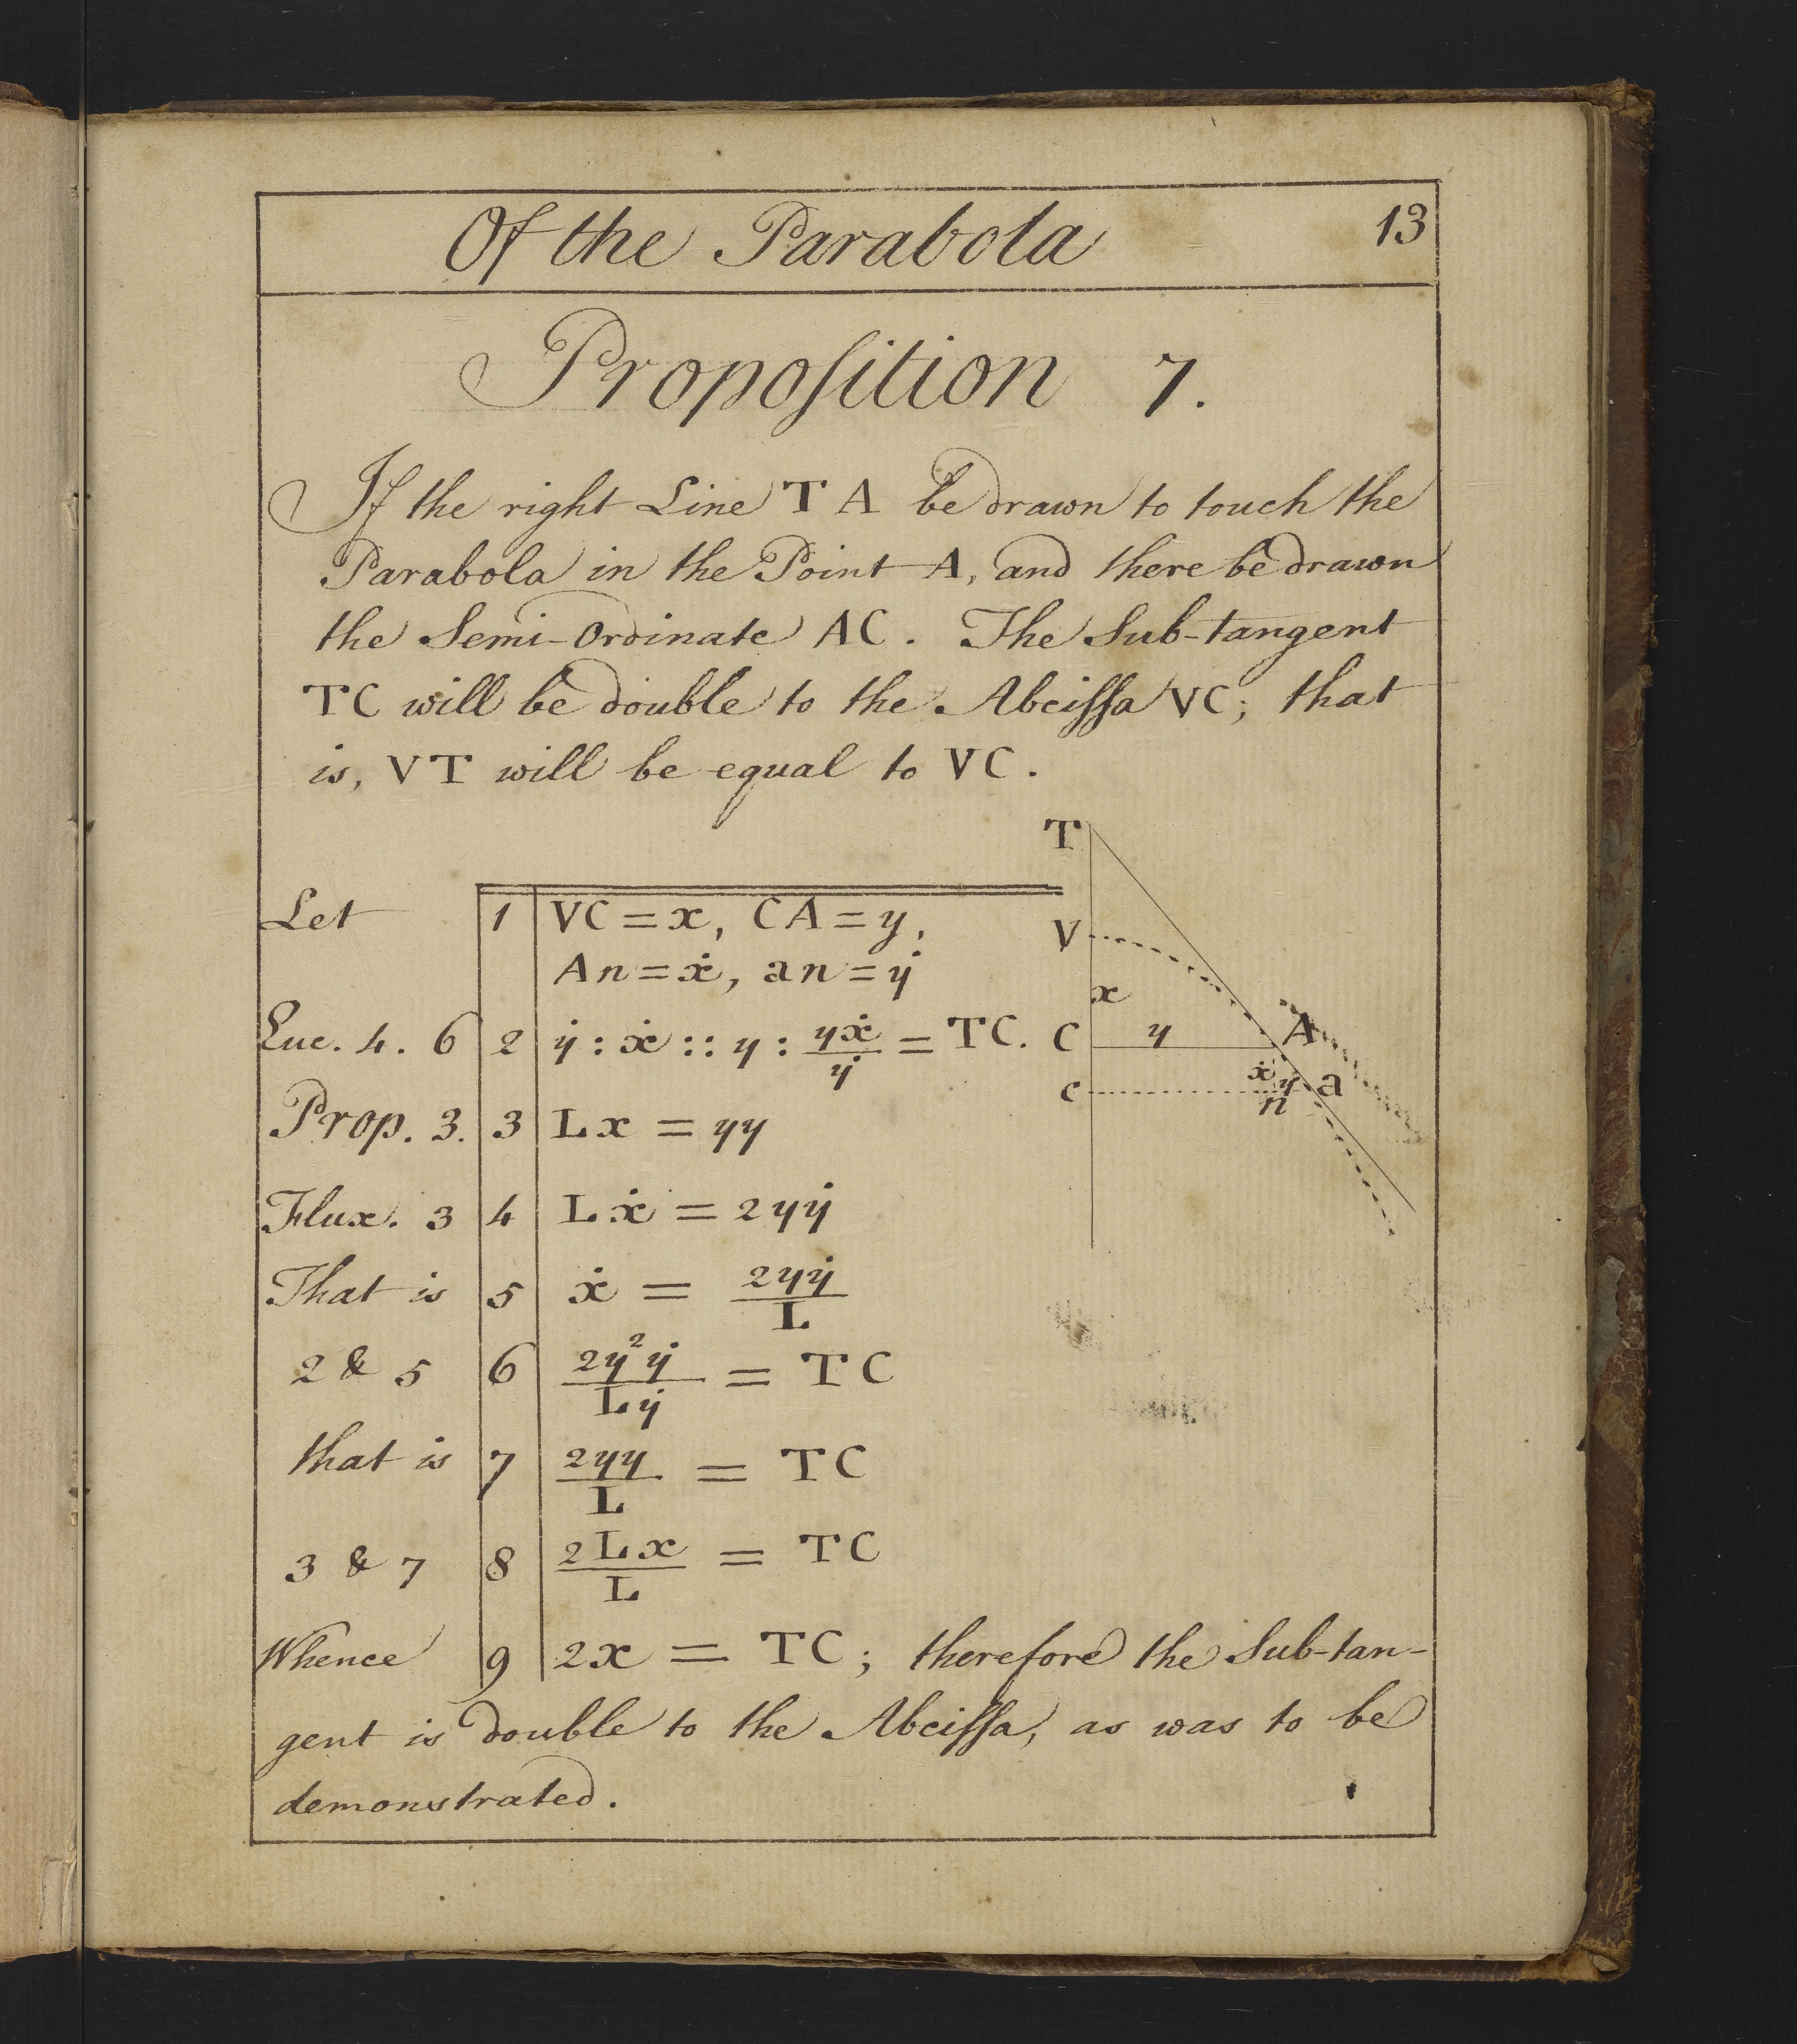 Of the Parabola 13
Propoſition 7.
If the right Line T A be drawn to touch the
Parabola in the Point A, and there be drawn
the Semi-Ordinate AC. The Sub-tangent
TC will be double to the Abciſsa VC; that
is, VT will be equal to VC.
T
Let 1 VC = x, CA = y,
V
An = ẋ, an = ẏ
x
Euc. 4. 6 2 ẏ : ẋ :: y : yẋ/ẏ = TC.
C y A
ẋ ẏ a
c n
Prop. 3. 3 Lx = yy
Flux. 3 4 Lẋ = 2yẏ
That is 5 ẋ = 2yẏ/L
2 & 5 6 2y²ẏ/Lẏ = TC
that is 7 2yy/L = TC
3 & 7 8 2Lx/L = TC
Whence 9 2x = TC; therefore the Sub-tan-
gent is double to the Abciſsa, as was to be
demonstrated.